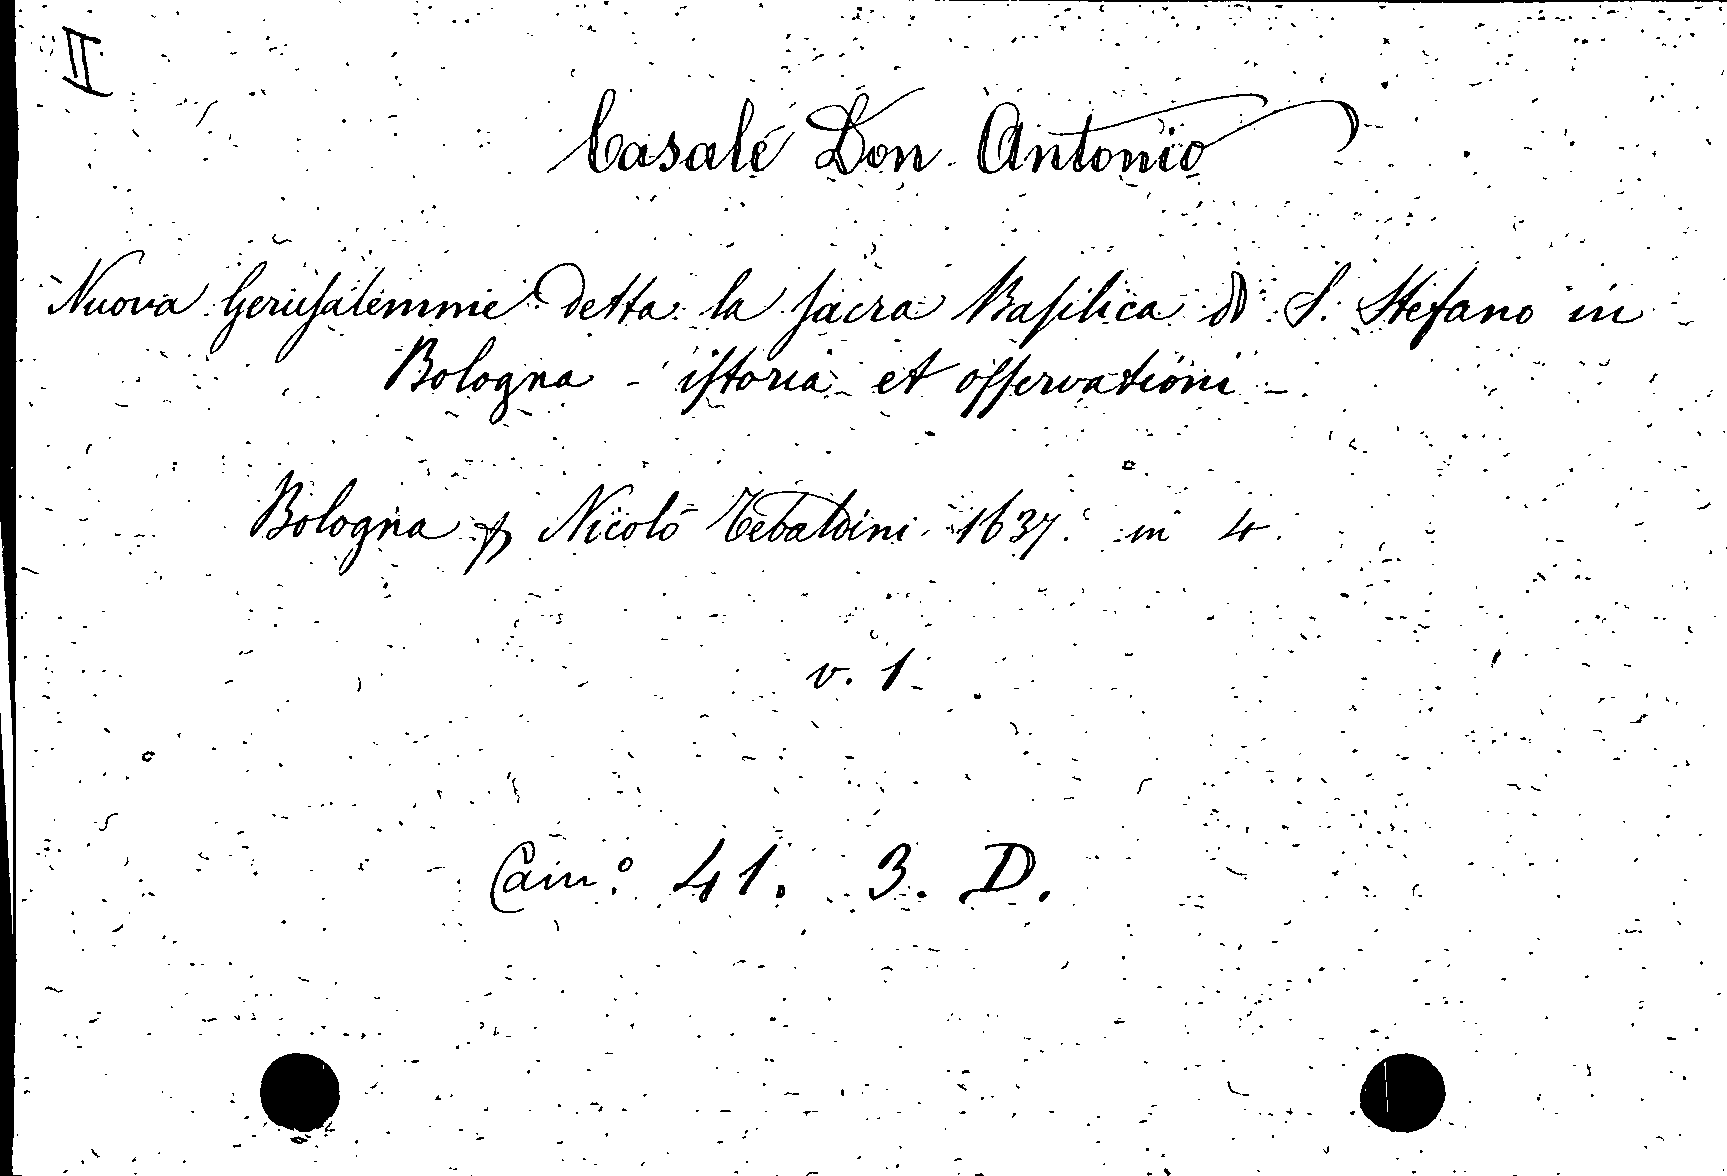 II
Casale Don Antonio
Nuova Gerusalemme detta la sacra Basilica di S. Stefano in
Bologna - istoria et osservationi -
Bologna p Nicolò Tebaldini 1637. in 4.
v. 1
Cam.º 41. 3. D.